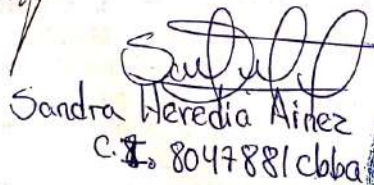 Sandra Heredia Ainez
C.I. 8047881 cbba